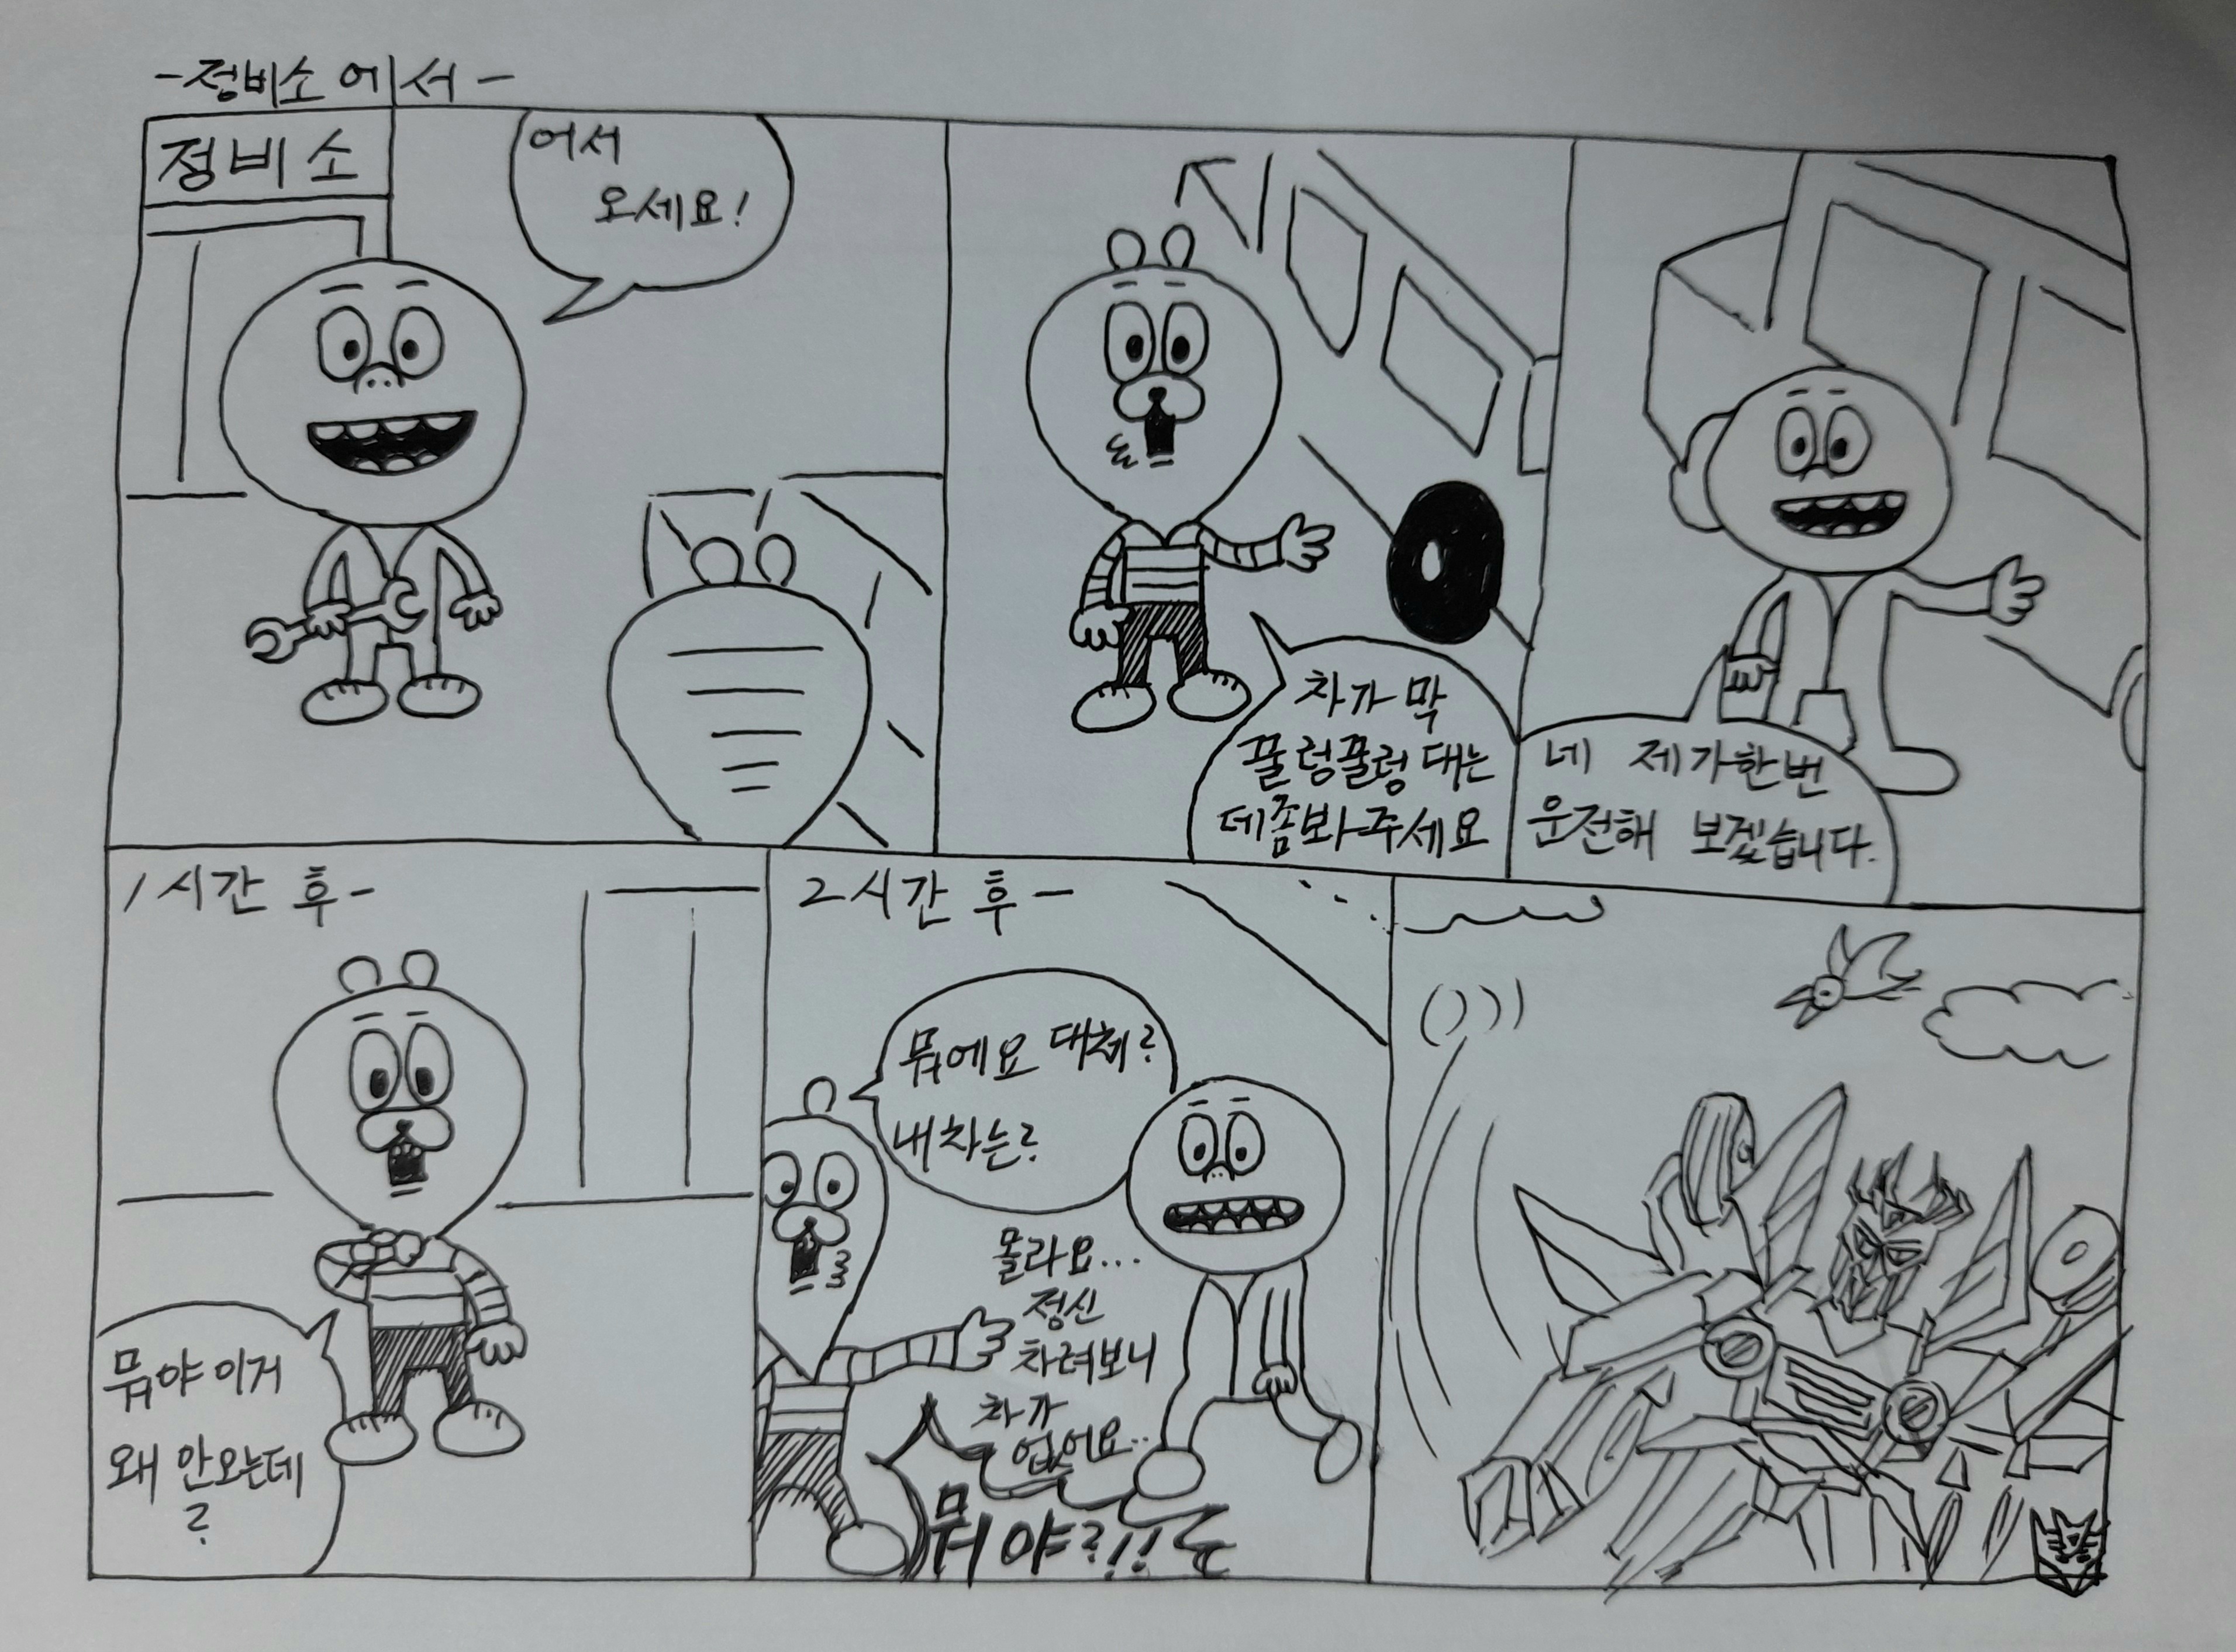 -정비소에서-
정비소
어서
오세요!
차가 막
꿀렁꿀렁 대는
데좀봐주세요
네 제가한번
운전해 보겠습니다.
1시간 후-
뭐야 이거
왜 안오는데
?
2시간 후-
뭐에요 대체?
내차는?
몰라요...
정신
차려보니
차가
없어요..
뭐야?!!